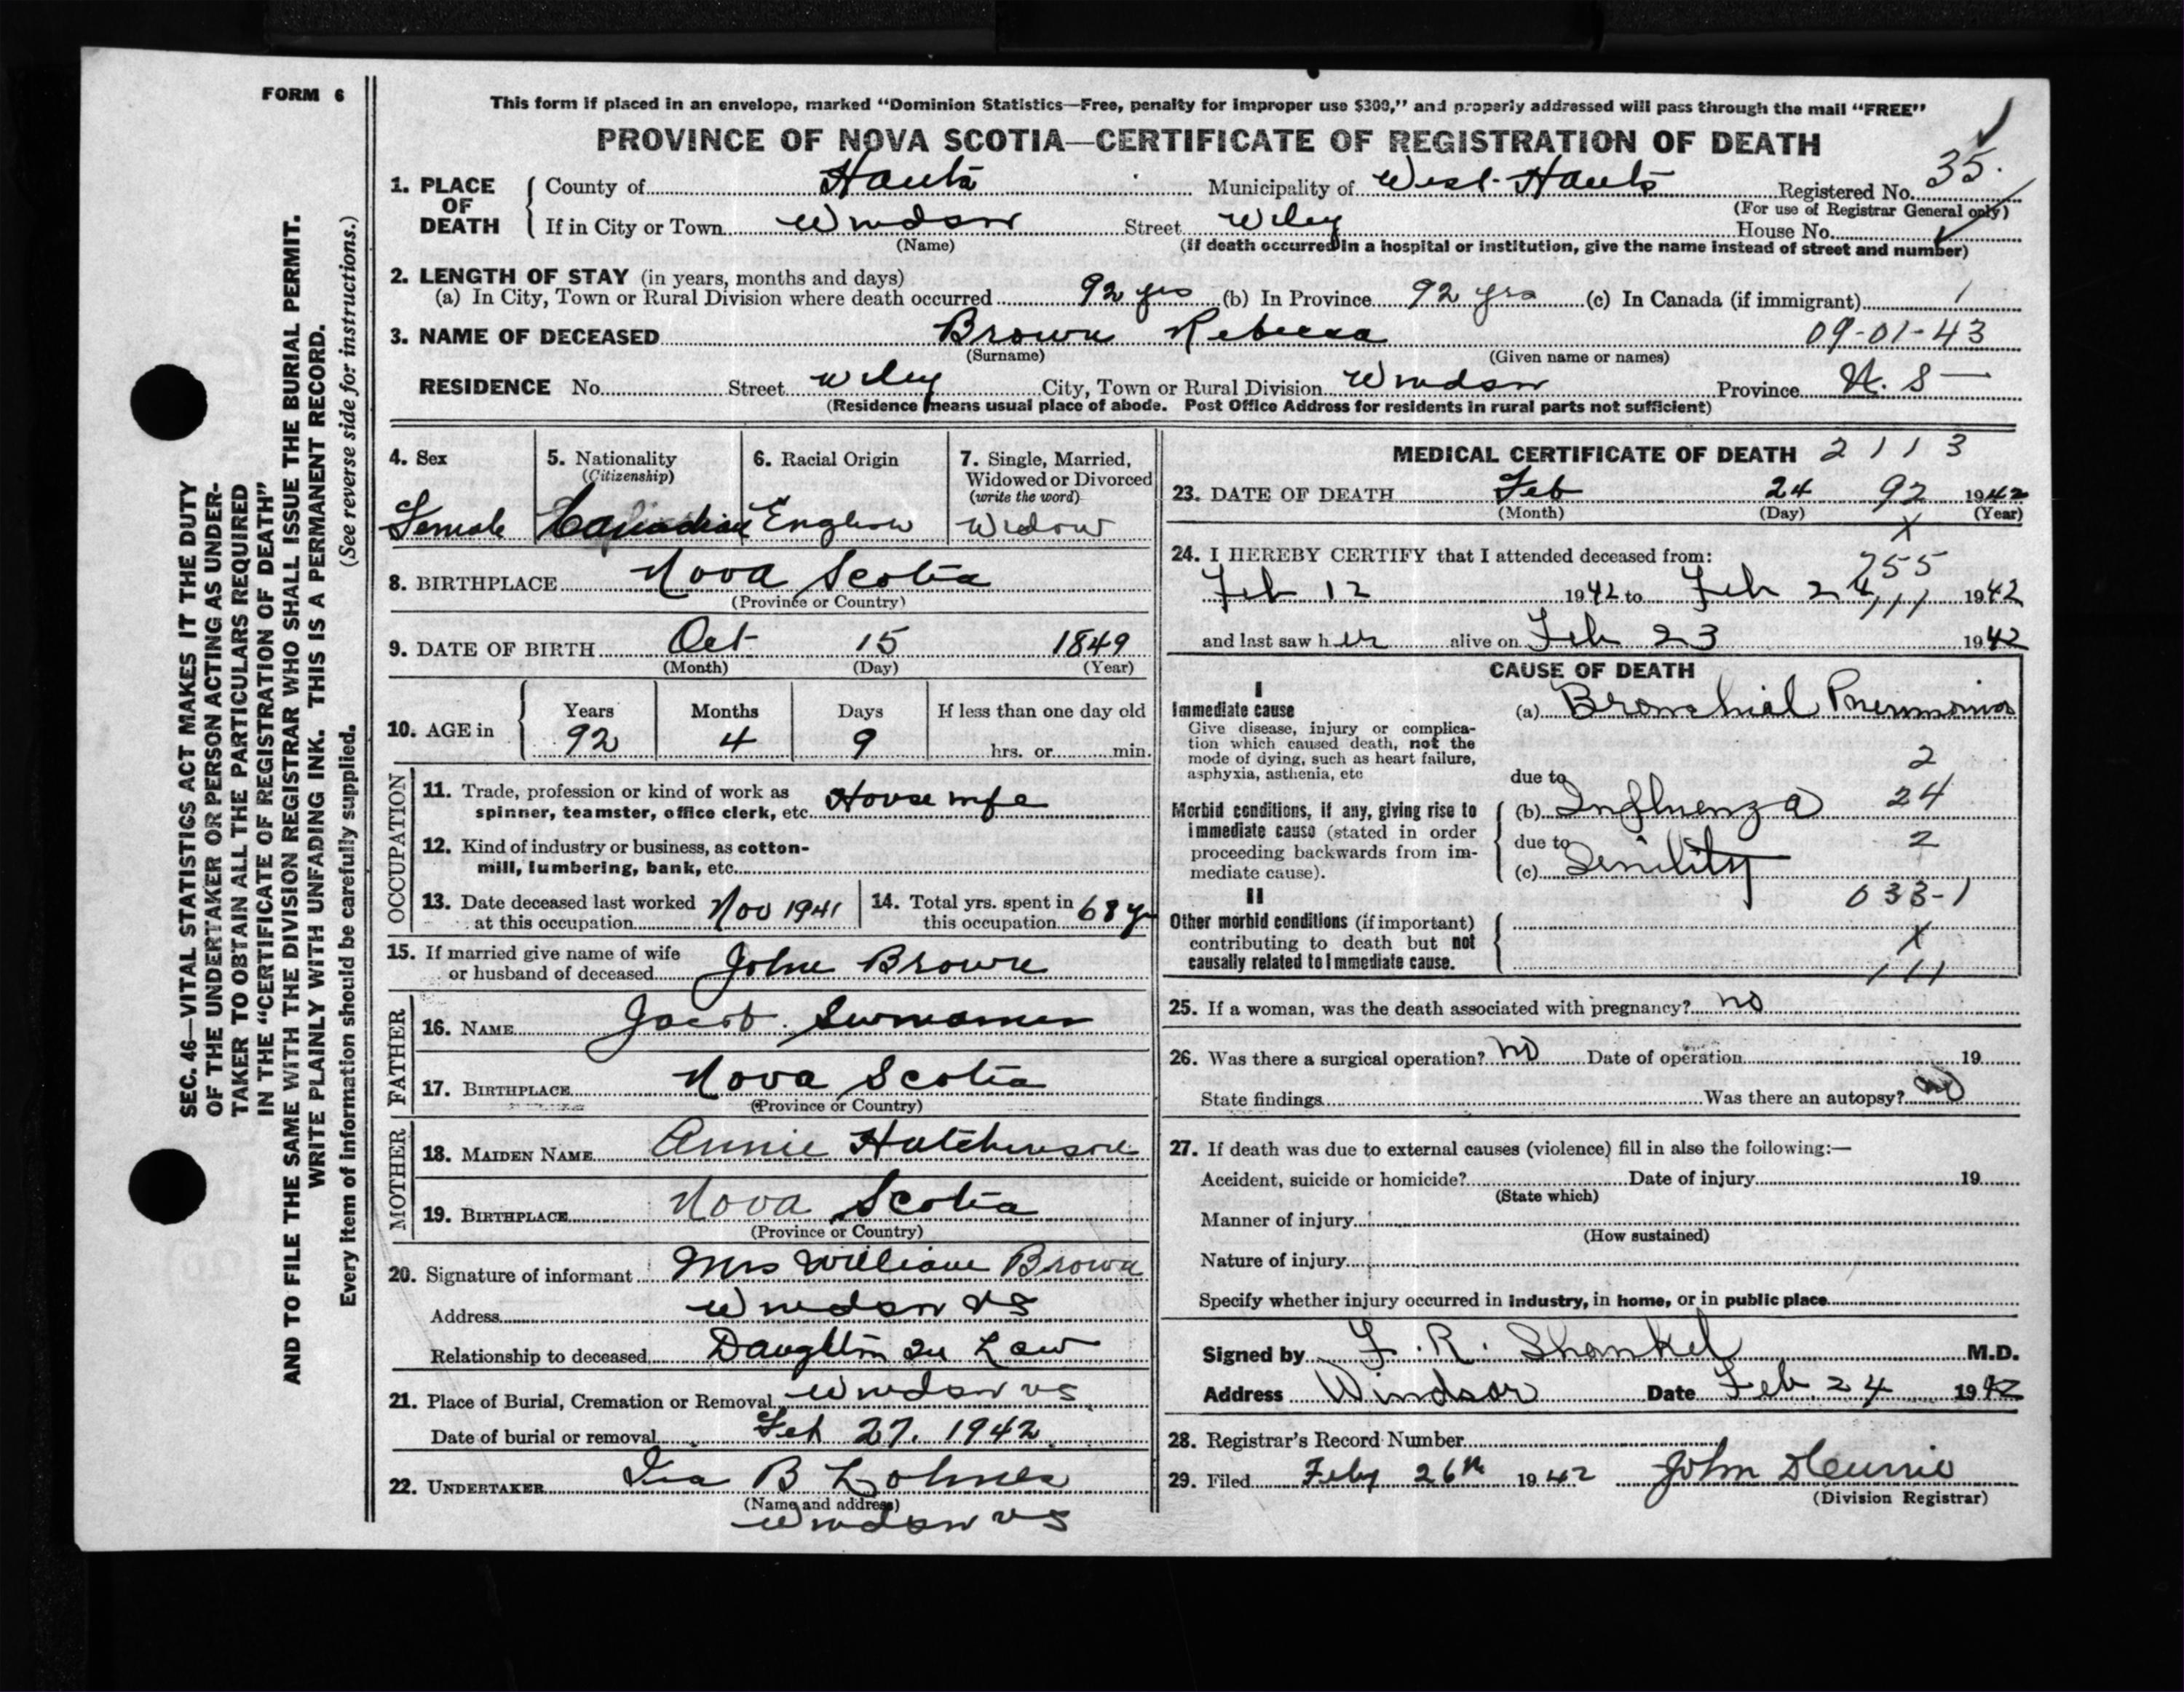 FORM 6
This form if placed in an envelope, marked "Dominion Statistics—Free, penalty for improper use $300," and properly addressed will pass through the mail "FREE"
PROVINCE OF NOVA SCOTIA—CERTIFICATE OF REGISTRATION OF DEATH
SEC. 46—VITAL STATISTICS ACT MAKES IT THE DUTY
OF THE UNDERTAKER OR PERSON ACTING AS UNDER-
TAKER TO OBTAIN ALL THE PARTICULARS REQUIRED
IN THE "CERTIFICATE OF REGISTRATION OF DEATH"
AND TO FILE THE SAME WITH THE DIVISION REGISTRAR WHO SHALL ISSUE THE BURIAL PERMIT.
WRITE PLAINLY WITH UNFADING INK. THIS IS A PERMANENT RECORD.
Every item of information should be carefully supplied. (See reverse side for instructions.)
1. PLACE OF DEATH County of Hants Municipality of West Hants Registered No. 35.
(For use of Registrar General only)
If in City or Town Windsor Street Wiley House No.
(Name) (If death occurred in a hospital or institution, give the name instead of street and number)
2. LENGTH OF STAY (in years, months and days)
(a) In City, Town or Rural Division where death occurred 92 yrs (b) In Province 92 yrs (c) In Canada (if immigrant) /
3. NAME OF DECEASED Brown Rebecca 09-01-43
(Surname) (Given name or names)
RESIDENCE No. Street Wiley City, Town or Rural Division Windsor Province N. S
(Residence means usual place of abode. Post Office Address for residents in rural parts not sufficient)
4. Sex Female
5. Nationality (Citizenship) Canadian
6. Racial Origin English
7. Single, Married, Widowed or Divorced (write the word) Widow
8. BIRTHPLACE Nova Scotia
(Province or Country)
9. DATE OF BIRTH Oct 15 1849
(Month) (Day) (Year)
10. AGE in Years 92 Months 4 Days 9 If less than one day old hrs. or min.
OCCUPATION
11. Trade, profession or kind of work as
spinner, teamster, office clerk, etc. Housewife
12. Kind of industry or business, as cotton-
mill, lumbering, bank, etc.
13. Date deceased last worked
at this occupation Nov 1941
14. Total yrs. spent in
this occupation 68 yr
15. If married give name of wife
or husband of deceased John Brown
FATHER
16. NAME Jacob
17. BIRTHPLACE Nova Scotia
(Province or Country)
MOTHER
18. MAIDEN NAME Annie Hutchinson
19. BIRTHPLACE Nova Scotia
(Province or Country)
20. Signature of informant Mrs William Brown
Address Windsor NS
Relationship to deceased Daughter in Law
21. Place of Burial, Cremation or Removal Windsor NS
Date of burial or removal Feb 27. 1942
22. UNDERTAKER Ira B Lohnes
(Name and address)
Windsor NS
MEDICAL CERTIFICATE OF DEATH 2113
23. DATE OF DEATH Feb 24 92 1942
(Month) (Day) (Year)
X
24. I HEREBY CERTIFY that I attended deceased from:
755
Feb 12 1942 to Feb 24 1942
111
and last saw her alive on Feb 23 1942
CAUSE OF DEATH
I
Immediate cause (a) Bronchial Pneumonia
Give disease, injury or complica-
tion which caused death, not the
mode of dying, such as heart failure,
asphyxia, asthenia, etc
2
due to
Morbid conditions, if any, giving rise to
immediate cause (stated in order
proceeding backwards from im-
mediate cause).
(b) Influenza 24
due to 2
(c) Senility
033-1
II
Other morbid conditions (if important)
contributing to death but not
causally related to immediate cause.
X
111
25. If a woman, was the death associated with pregnancy? no
26. Was there a surgical operation? no Date of operation 19
State findings Was there an autopsy? no
27. If death was due to external causes (violence) fill in also the following:—
Accident, suicide or homicide? Date of injury 19
(State which)
Manner of injury
(How sustained)
Nature of injury
Specify whether injury occurred in industry, in home, or in public place
Signed by F. R. Shankel M.D.
Address Windsor Date Feb. 24 1942
28. Registrar's Record Number
29. Filed Feby 26th 1942 John
(Division Registrar)